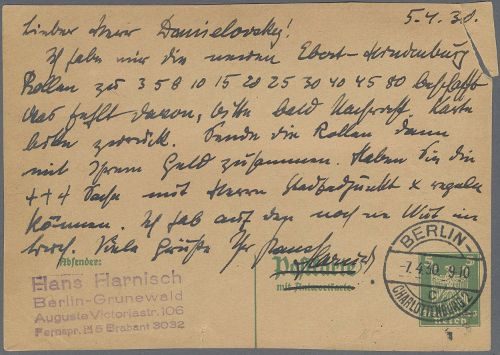 5.4.30.
Lieber Herr Danielovsky!
Ich habe mir die neuen Ebert-Hindenburg
Rollen zu 3 5 8 10 15 20 25 30 40 45 80 beschafft
Was fehlt davon, bitte bald Nachricht Karte
bitte zurück. Sende die Rollen dann
mit Ihrem Geld zusammen. Haben Sie die
+++ Sache mit Herrn x regeln
können. Ich hab auf den noch ne Wut im
Viele Grüße Ihr Hans Harnisch
Absender:
Hans Harnisch
Berlin-Grunewald
Auguste Victoriastr. 106
Fernspr. H 5 Brabant 3032
Postkarte
mit Antwortkarte
BERLIN-
-7.4.30 9-10
CHARLOTTENBURG 2